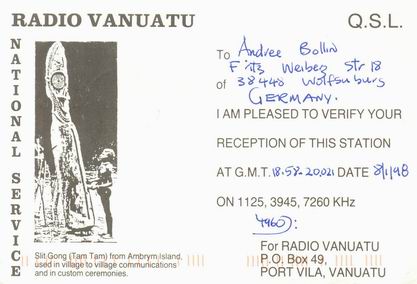 RADIO VANUATU
Q.S.L.
NATIONAL SERVICE
To Andree Bollin
Fritz Weiberg Str 18
of 38448 Wolfsburg
GERMANY.
I AM PLEASED TO VERIFY YOUR
RECEPTION OF THIS STATION
AT G.M.T. 18.58-20.021 DATE 8/1/98
ON 1125, 3945, 7260 KHz
4960):
For RADIO VANUATU
P.O. Box 49,
PORT VILA, VANUATU
Slit Gong (Tam Tam) from Ambrym Island,
used in village to village communications
and in custom ceremonies.